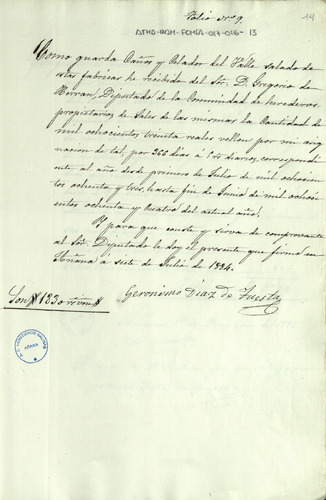 Folio nº 9.
14
ATHA-DAH-FCMSA-014-016-13
Como guarda Caños y Celador del Valle salado de
estas fabricas he recibido del Sôr. D. Gregorio de
Herran, Diputado de la Comunidad de herederos
propietarios de Sales de las mismas la Cantidad de
mil ochocientos treinta reales vellon por mi asig
nacion de tal, por 366 dias a 5 rs diarios, correspondi
ente al año desde primero de Julio de mil ochocien
tos ochenta y tres, hasta fin de Junio de mil ochoci
entos ochenta y cuatro del actual año.
Y para que conste y sirva de comprobante
al Sôr. Diputado le doy el presente que firmo en
Añana á siete de Julio de 1884.
Son # 1830 rs von #
Geronimo Diaz de Tuesta
A.C. HEREDEROS SALINAS
AÑANA